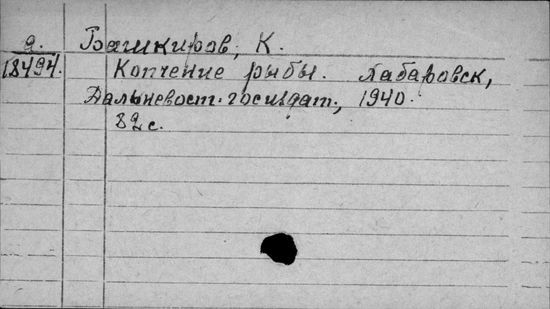 д. Башкиров, К.
18494. Копчение рыбы. Хабаровск,
Дальневост. госиздат, 1940.
82 с.